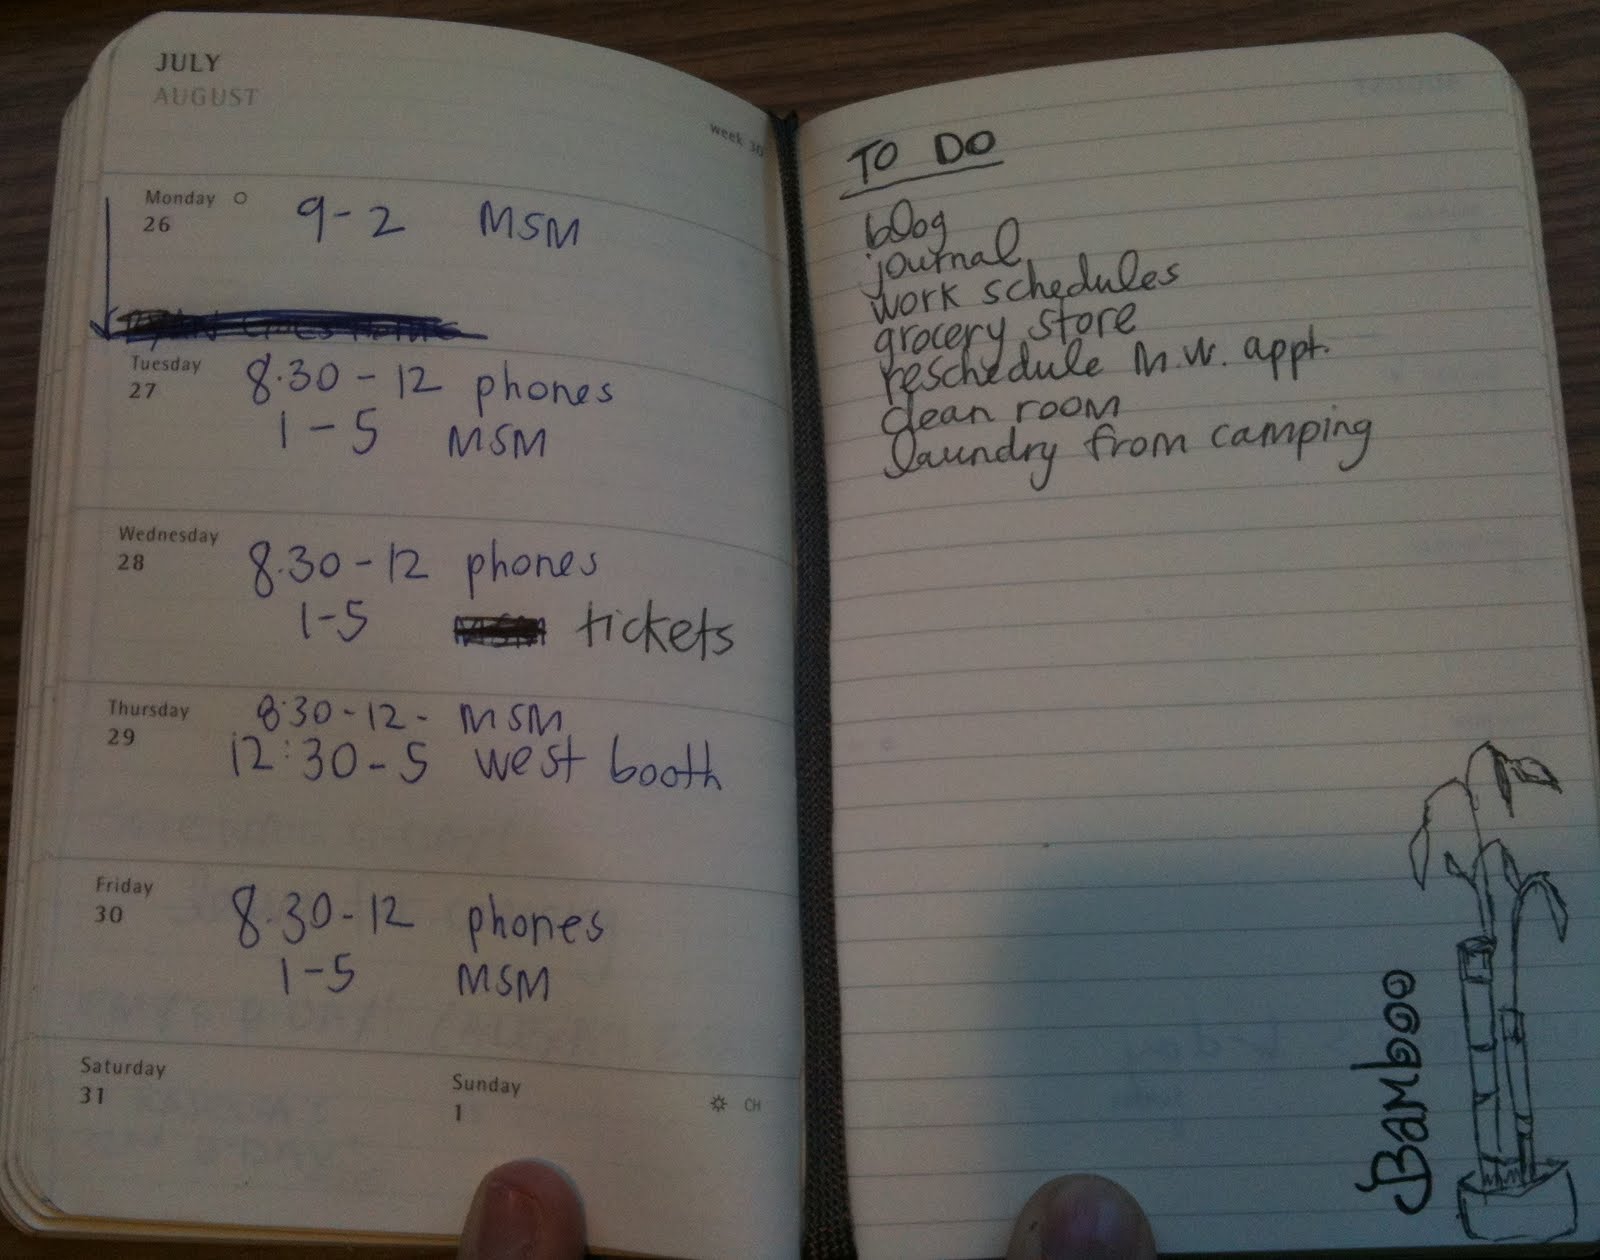 JULY
AUGUST
week 30
Monday
26
9-2 MSM
Tuesday
27
8.30-12 phones
1-5 MSM
Wednesday
28
8.30-12 phones
1-5 tickets
Thursday
29
8:30-12- MSM
12:30-5 west booth
Friday
30
8.30-12 phones
1-5 MSM
Saturday
31
Sunday
1
CH
TO DO
blog
journal
work schedules
grocery store
reschedule M.W. appt.
clean room
laundry from camping
Bamboo